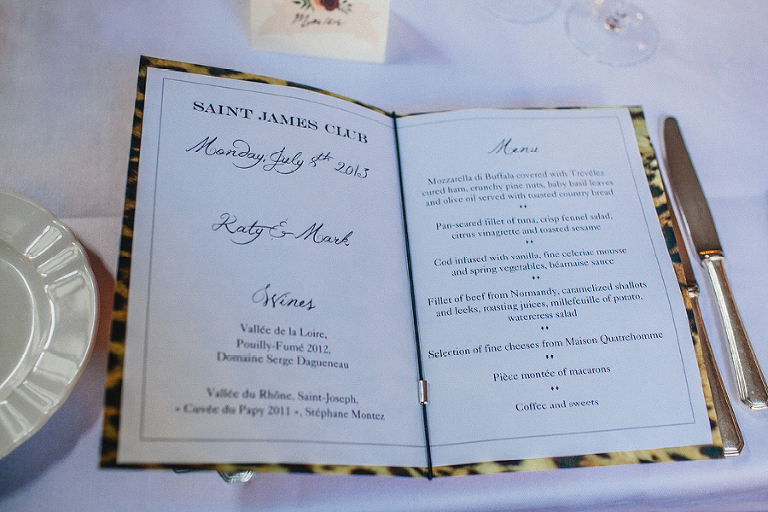 SAINT JAMES CLUB
Monday, July 8th 2013
Katy & Mark
Wines
Vallée de la Loire,
Pouilly-Fumé 2012,
Domaine Serge Dagueneau
Vallée du Rhône, Saint-Joseph,
« Cuvée du Papy 2011 », Stéphane Montez
Menu
Mozzarella di Buffala covered with Trévélez
cured ham, crunchy pine nuts, baby basil leaves
and olive oil served with toasted country bread
Pan-seared fillet of tuna, crisp fennel salad,
citrus vinagrette and toasted sesame
Cod infused with vanilla, fine celeriac mousse
and spring vegetables, béarnaise sauce
Fillet of beef from Normandy, caramelized shallots
and leeks, roasting juices, millefeuille of potato,
watercress salad
Selection of fine cheeses from Maison Quatrehomme
Pièce montée of macarons
Coffee and sweets